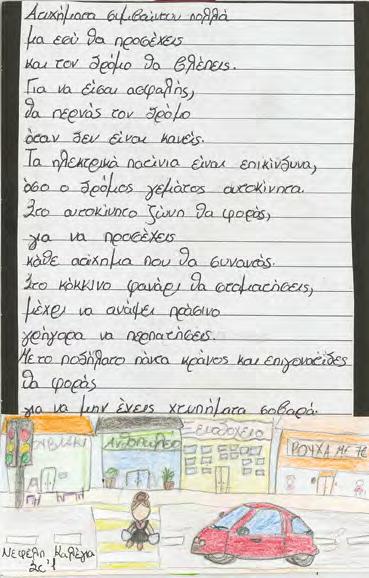 Ατυχήματα συμβαίνουν πολλά
μα εσύ θα προσέχεις
και τον δρόμο θα βλέπεις.
Για να είσαι ασφαλής,
θα περνάς τον δρόμο
όταν δεν είναι κανείς.
Τα ηλεκτρικά πατίνια είναι επικίνδυνα,
όσο ο δρόμος γεμάτος αυτοκίνητα.
Στο αυτοκίνητο ζώνη θα φοράς,
για να προσέχεις
κάθε ατύχημα που θα συναντάς.
Στο κόκκινο φανάρι θα σταματήσεις,
μέχρι να ανάψει πράσινο
γρήγορα να περπατήσεις.
Με το ποδήλατο πάντα κράνος και επιγονατίδες
θα φοράς
για να μην έχεις χτυπήματα σοβαρά.
ΣΟΥΒΛΑΚΙ
Ανθοπωλείο
Ξενοδοχείο
ΡΟΥΧΑ ΜΕ 7€
Νεφέλη
Στ'1